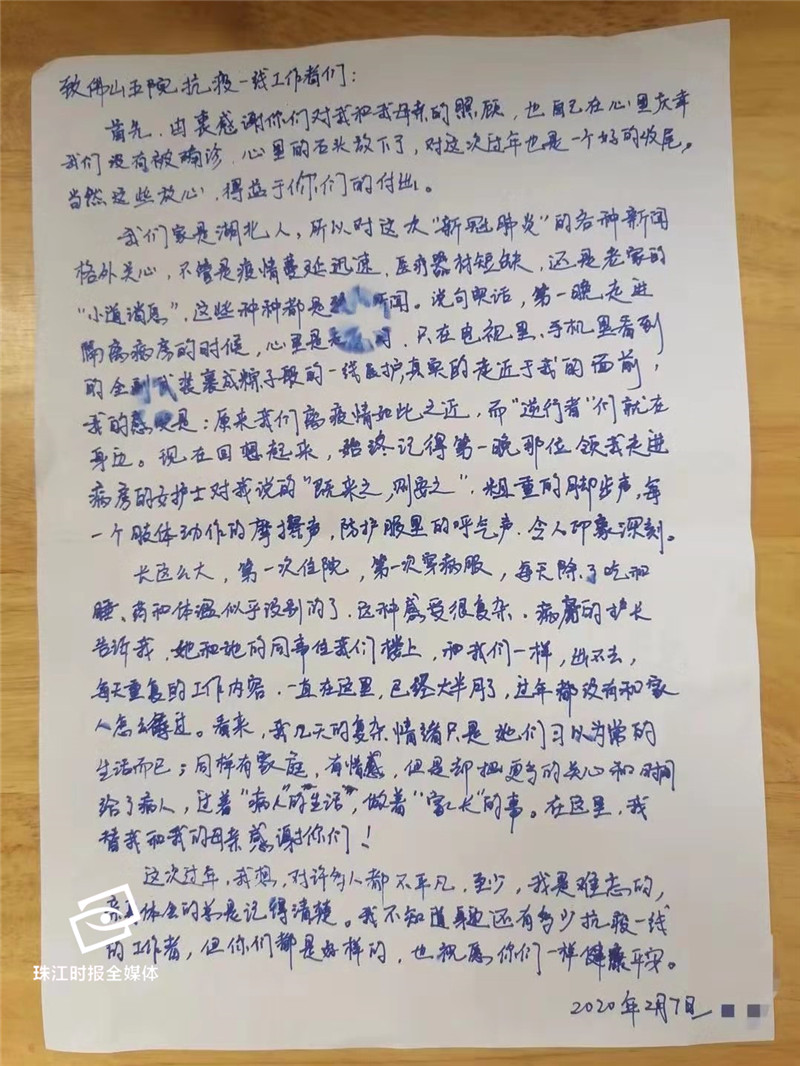 致佛山五院抗疫一线工作者们：
首先，由衷感谢你们对我和我母亲的照顾，也自己在心里庆幸
我们没有被确诊，心里的石头放下了，对这次过年也是一个好的收尾。
当然这些放心，得益于你们的付出。
我们家是湖北人，所以对这次"新冠肺炎"的各种新闻
格外关心，不管是疫情蔓延迅速，医疗器材短缺，还是老家的
"小道消息"，这些种种都是 新闻。说句实话，第一晚走进
隔离病房的时候，心里是 ，只在电视里、手机里看到
的全副武装裹成粽子般的一线医护真实的走近于我的面前，
我的感 是：原来我们离疫情如此之近，而"逆行者"们就在
身边。现在回想起来，始终记得第一晚那位领我走进
病房的女护士对我说的"既来之，则安之"，粗重的脚步声，每
一个肢体动作的摩擦声，防护服里的呼气声，令人印象深刻。
长这么大，第一次住院，第一次穿病服，每天除了吃和
睡、药和体温似乎没别的了，这种感受很复杂。病房的护长
告诉我，她和她的同事住我们楼上，和我们一样，出不去，
每天重复的工作内容，一直在这里，已经大半月了，过年都没有和家
人怎么聊过。看来，我几天的复杂情绪只是她们习以为常的
生活而已；同样有家庭，有情感，但是却把更多的关心和时间
给了病人，过着"病人"的生活，做着"家长"的事。在这里，我
替我和我的母亲感谢你们！
这次过年，我想，对许多人都不平凡，至少，我是难忘的，
体会的总是记得清楚。我不知道身边还有多少抗疫一线
的工作者，但你们都是好样的，也祝愿你们一样健康平安。
2020年2月7日
珠江时报全媒体